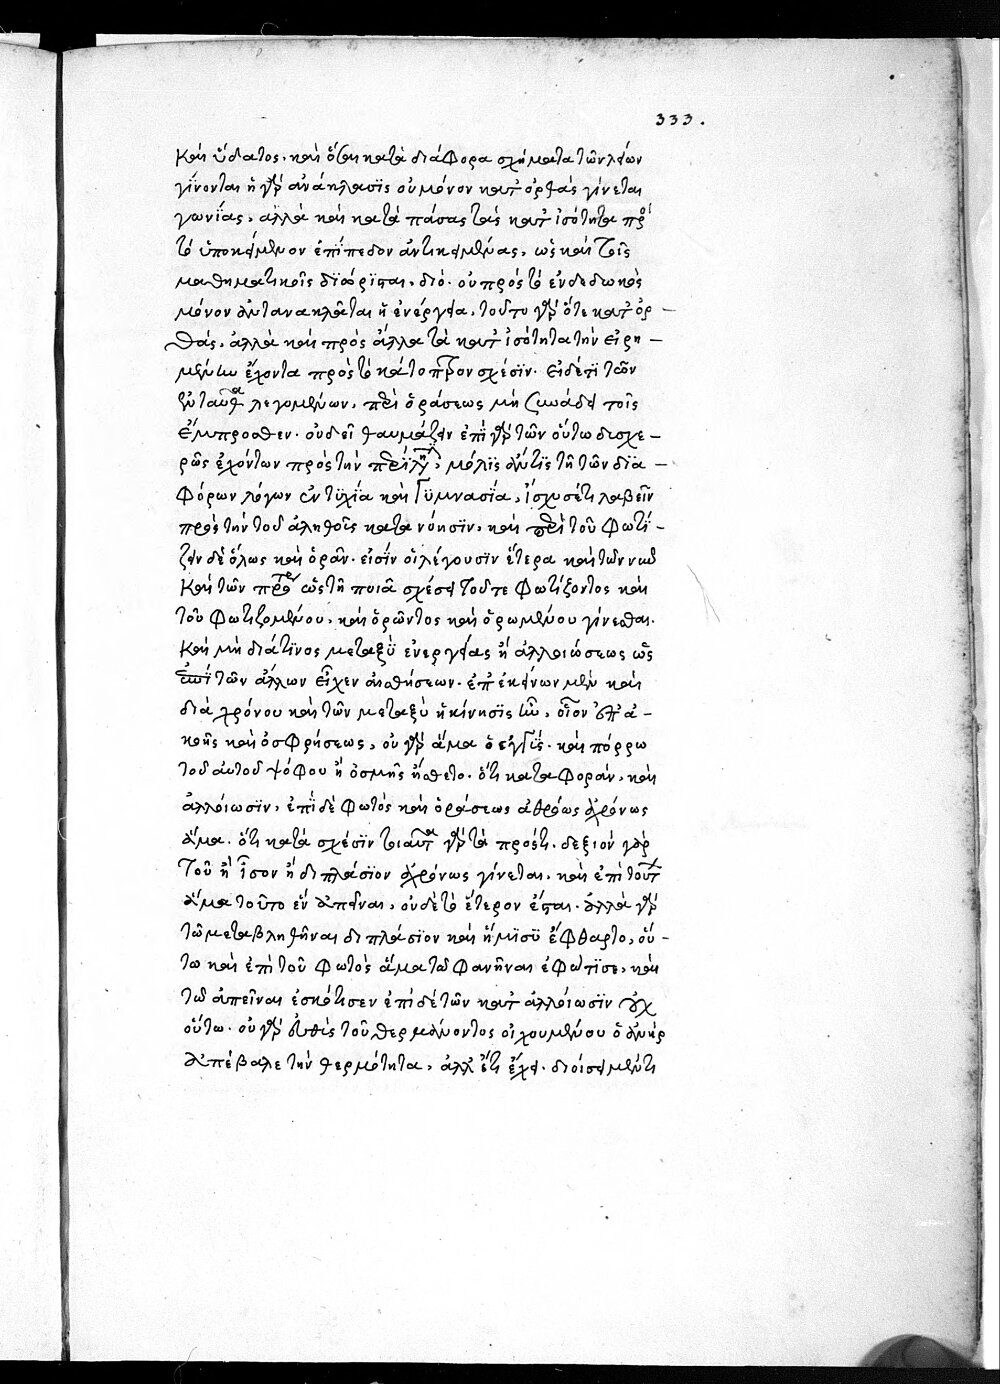 333.
καὶ ὕδατος, καὶ ὅσα κατὰ διάφορα σχήματα τῶν λείων
γίνονται ἡ γὰρ ἀνάκλασις οὐ μόνον κατ' ὀρθὰς γίνεται
γωνίας, ἀλλὰ καὶ κατὰ πάσας τὰς κατ' ἰσότητα πρὸς
τὸ ὑποκείμενον ἐπίπεδον ἀντικειμένας, ὡς καὶ τοῖς
μαθηματικοῖς διώρισται, διὸ οὐ πρὸς τὸ ἐνδεδωκὸς
μόνον ἀντανακλᾶται ἡ ἐνέργεια, τοῦτο γὰρ ὅτε κατ' ὀρ-
θάς, ἀλλὰ καὶ πρὸς ἄλλα τὰ κατ' ἰσότητα τὴν εἰρη-
μένην ἔχοντα πρὸς τὸ κάτοπτρον σχέσιν. εἰ δέ τι τῶν
ἐνταῦθα λεγομένων, περὶ ὁράσεως μὴ συνάδει τοῖς
ἔμπροσθεν. οὐ δεῖ θαυμάζειν ἐπὶ γὰρ τῶν οὕτω δυσχε-
ρῶς ἐχόντων πρὸς τὴν , μόλις ἄν τις τῇ τῶν δια-
φόρων λόγων ἐντυχία καὶ γυμνασία, ἰσχύσέ τι λαβεῖν
πρὸς τὴν τοῦ ἀληθοῦς κατανόησιν, καὶ περὶ τοῦ φωτί-
ζειν δὲ ὅλως καὶ ὁρᾶν. εἰσὶν οἳ λέγουσιν ἕτερα καὶ τῶν νῦν
καὶ τῶν πρότερον ὡς τῇ ποιᾷ σχέσει τοῦ τε φωτίζοντος καὶ
τοῦ φωτιζομένου, καὶ ὁρῶντος καὶ ὁρωμένου γίνεσθαι.
καὶ μὴ διά τινος μεταξὺ ἐνεργείας ἢ ἀλλοιώσεως ὡς
ἐπὶ τῶν ἄλλων εἶχεν αἰσθήσεων. ἐπ' ἐκείνων μὲν καὶ
διὰ χρόνου καὶ τῶν μεταξὺ ἡ κίνησις ἦν, οἷον ἐπὶ ἀ-
κοῆς καὶ ὀσφρήσεως, οὐ γὰρ ἅμα ὁ ἐγγὺς καὶ πόρρω
τοῦ αὐτοῦ ψόφου ἢ ὀσμῆς ᾔσθετο. ὅτι κατὰ φοράν, καὶ
ἀλλοίωσιν, ἐπὶ δὲ φωτὸς καὶ ὁράσεως ἀθρόως ἀχρόνως
ἅμα. ὅτι κατὰ σχέσιν τοιαῦτα γὰρ τὰ πρός τι. δεξιὸν γὰρ
τοῦ ἢ ἴσον ἢ διπλάσιον ἀχρόνως γίνεται, καὶ ἐπὶ τούτων
ἅμα τοῦτο ἓν ἀπεῖναι, οὐδὲ τὸ ἕτερον ἔσται. ἀλλὰ γὰρ
τῷ μεταβληθῆναι διπλάσιον καὶ ἥμισυ ἔφθαρτο, οὕ-
τω καὶ ἐπὶ τοῦ φωτὸς ἅμα τῷ φανῆναι ἐφώτισε, καὶ
τῷ ἀπεῖναι ἐσκότισεν ἐπὶ δὲ τῶν κατ' ἀλλοίωσιν οὐχ
οὕτω. οὐ γὰρ εὐθὺς τοῦ θερμαίνοντος οἰχομένου ὁ ἀὴρ
ἀπέβαλε τὴν θερμότητα, ἀλλ' ἔτι ἔχει. διοίσει μέντι